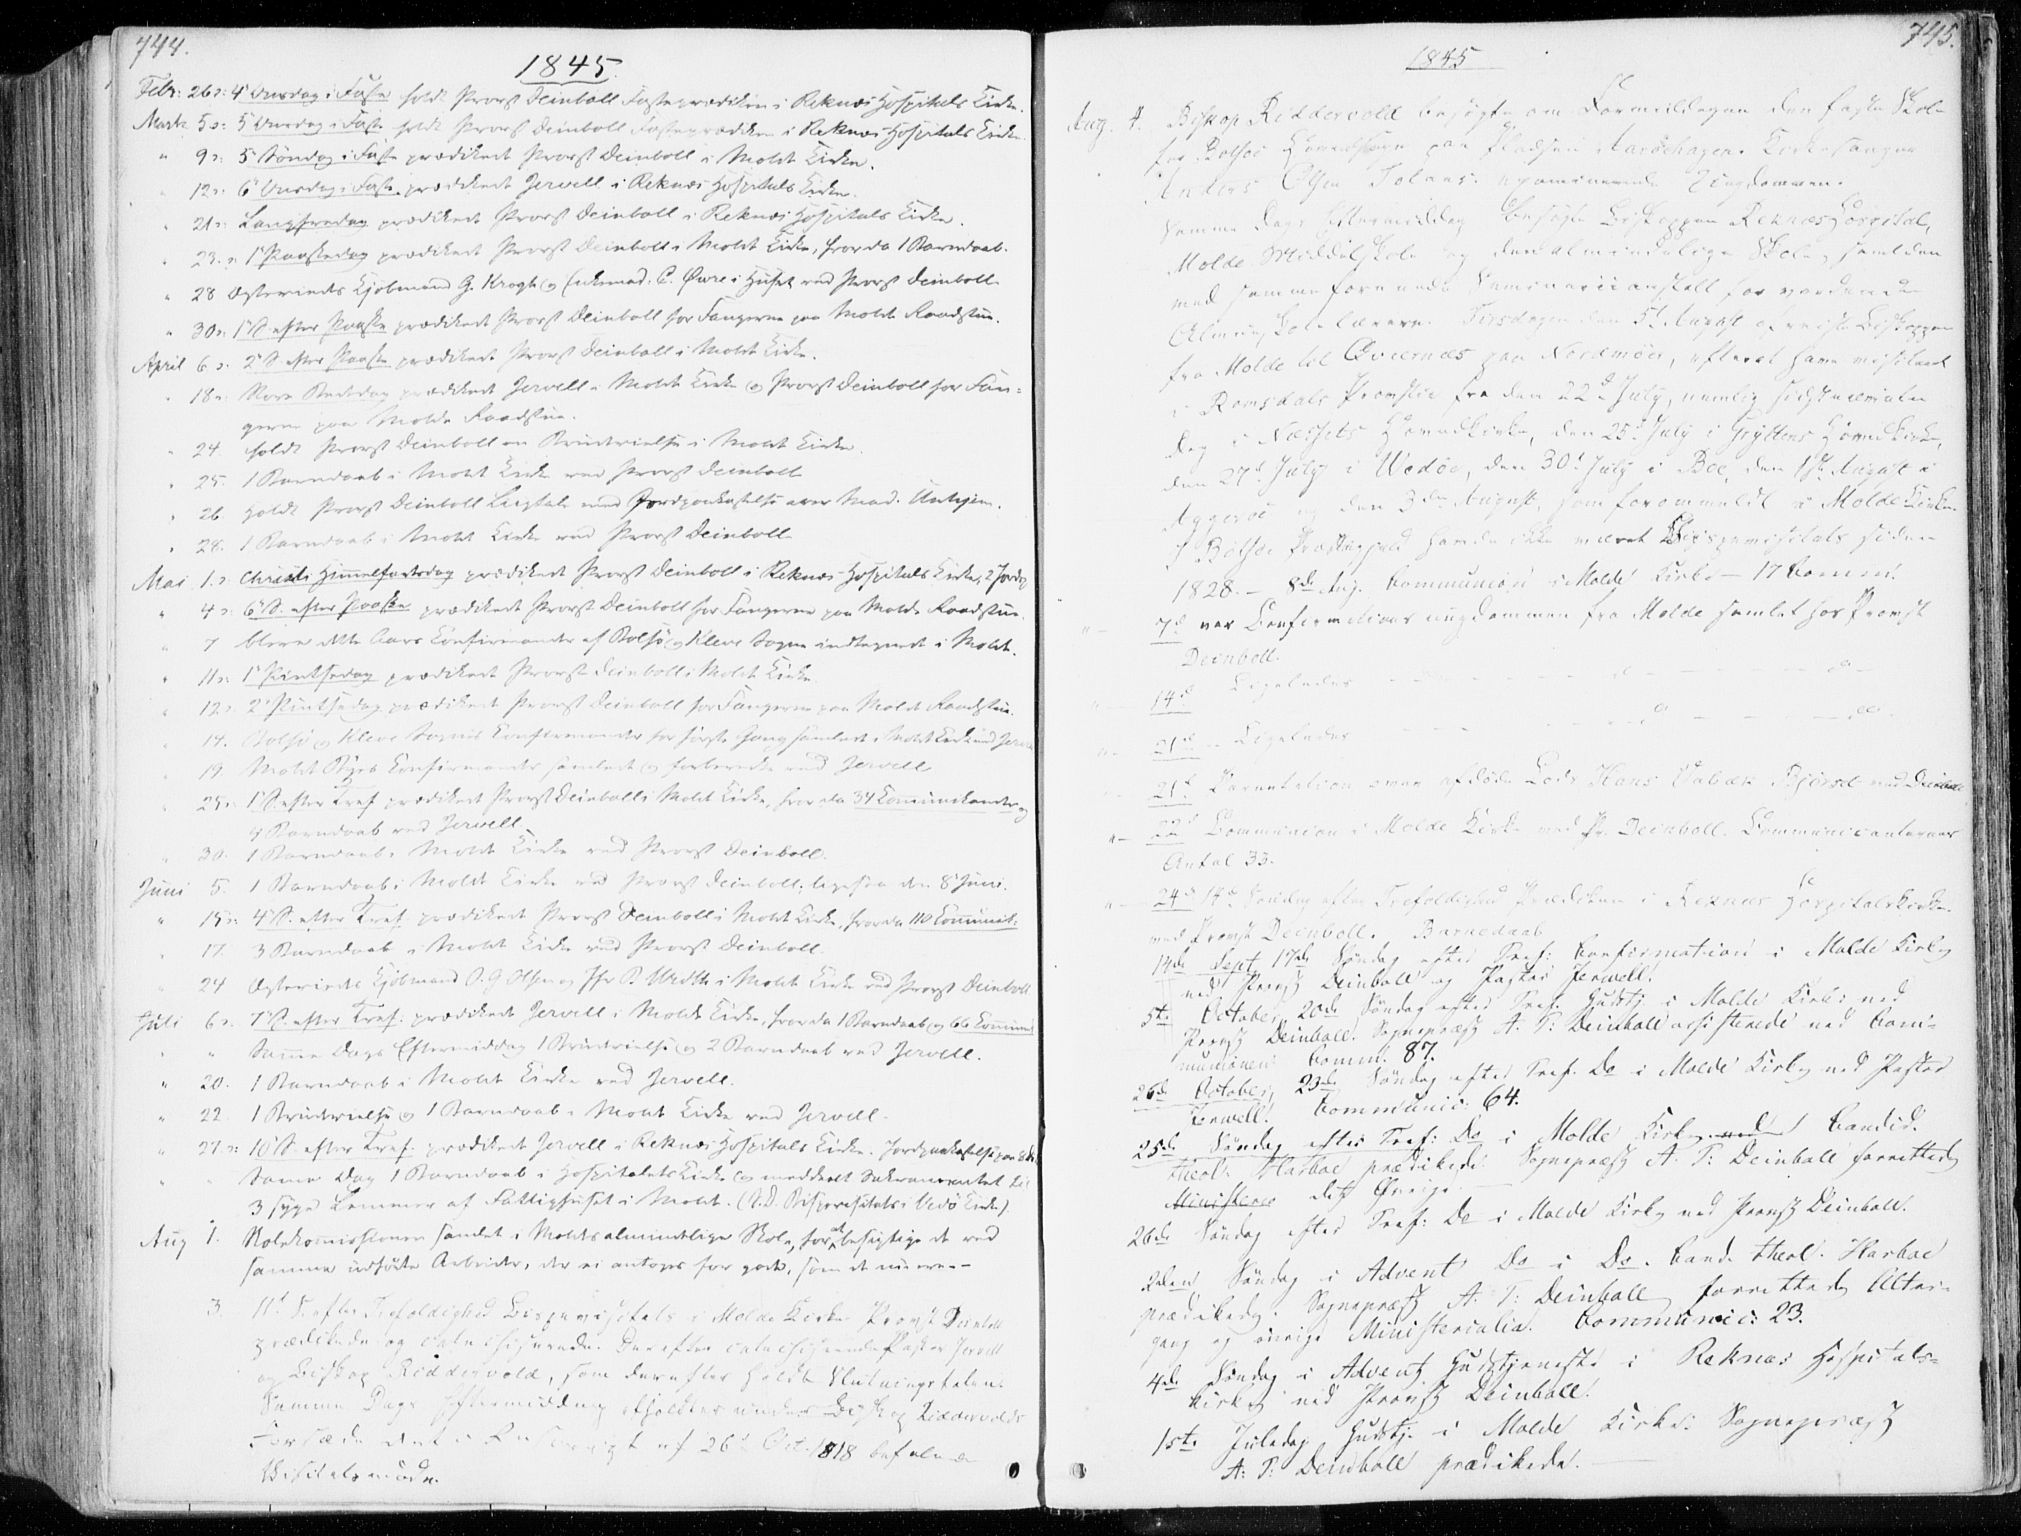 744.
1845.
Febr: 26 ɔ: 4e Onsdag i Faste holdt Provst Deinboll Fasteprædiken i Reknæs Hospitals Kirke.
Marts 5 ɔ: 5e Onsdag i Faste holdt Provst Deinboll Fasteprædiken i Reknæs Hospitals Kirke.
" 9 ɔ: 5e Søndag i Faste prædikede Provst Deinboll i Molde Kirke.
" 12 ɔ: 6e Onsdag i Faste prædikede Jervell i Reknæs Hospitals Kirke.
" 21 ɔ: Langfredag prædikede Provst Deinboll i Reknæs Hospitals Kirke.
" 23 ɔ: 1e Paaskedag prædikede Provst Deinboll i Molde Kirke, hvor da 1 Barnedaab.
" 28 Ægteviedes Kjøbmand G. Krogh og Enkemad. C. Øwre i Huset ved Provst Deinboll
" 30 ɔ: 1e S. efter Paaske prædikede Provst Deinboll for Fangerne paa Molde Raadstue.
April 6 ɔ: 2e S. efter Paaske prædikede Provst Deinboll i Molde Kirke.
" 18 ɔ: Store Bededag prædikede Jervell i Molde Kirke og Provst Deinboll for Fan-
gerne paa Molde Raadstue.
" 24. holdt Provst Deinboll en Brudevielse i Molde Kirke.
" 25. 1 Barnedaab i Molde Kirke ved Provst Deinboll
" 26 Holdt Provst Deinboll Ligtale med Jordpaakastelse over Mad.
" 28. 1 Barnedaab i Molde Kirke ved Provst Deinboll
Mai 1 ɔ: Christi Himmelfartsdag prædikede Provst Deinboll i Reknæs Hospitals Kirke, 2 Jordp.
" 4 ɔ: 6e S. efter Paaske prædikede Provst Deinboll for Fangerne paa Molde Raadstue.
" 7 bleve dette Aars Konfirmander af Bolsø og Kleve Sogne indtegnede i Molde.
" 11 ɔ: 1e Pintsedag prædikede Provst Deinboll i Molde Kirke
" 12 ɔ: 2e Pintsedag prædikede Provst Deinboll for Fangerne paa Molde Raadstue.
" 14. Bolsø og Kleve Sognes Konfirmander for første Gang samlede i Molde Kirke ved Jervell
" 19 Molde Byes Konfirmander samlede og forberedte ved Jervell
" 25 ɔ: 1e S. efter Tref prædikede Provst Deinboll i Molde Kirke, hvor da 34 Communikanter og
4 Barnedaab ved Jervell
" 30. 1 Barnedaab i Molde Kirke ved Provst Deinboll.
Juni 5. 1 Barnedaab i Molde Kirke ved Provst Deinboll; ligesaa den 8e Juni.
" 15 ɔ: 4e S. efter Tref. prædikede Provst Deinboll i Molde Kirke, hvor da 110 Communik:
" 17. 3 Barnedaab i Molde Kirke ved Provst Deinboll.
" 24 Ægteviedes Kjøbmand O. G. Olsen og Jfr. i Molde Kirke ved Provst Deinboll
Juli 6 ɔ: 7e S. efter Tref: prædikede Jervell i Molde Kirke, hvor da 1 Barnedaab og 66 Commun
" " Samme Dags Eftermiddag 1 Brudevielse og 2 Barnedaab ved Jervell.
" 20. 1 Barnedaab i Molde Kirke ved Jervell.
" 22 1 Brudevielse og 1 Barnedaab i Molde Kirke ved Jervell.
" 27 ɔ: 10e S. efter Tref. prædikede Jervell i Reknæs Hospitals Kirke. Jordpaakastelse paa
" " Samme Dag 1 Barnedaab i Hospitalets Kirke og meddeelt Sakramentet til
3 syge Lemmer af Fattighuset i Molde. (N.B. Bispevisitats i Vedø Kirke)
Aug 1. Skolekomissionen samlet i Moldes almindelige Skole, for at besigtige de ved
samme udførte Arbeider, der ei antoges for gode, som de nu ere.-
3. 11te S. efter Trefoldighed Bispevisitats i Molde Kirke Provst Deinboll
prædikede og catechiserede. Derefter catechiserede Pastor Jervell
og Biskop Riddervold, som derefter holdt Slutningstalen.
Samme Dags Eftermiddag afholdtes under Biskop Riddervolds
Forsæde det i Rescript af 26de Oct. 1818 befalede
Visitatsmøde.
745.
1845
Aug. 4. Biskop Riddervold besøgte om Formiddagen den faste Skole
for Bolsøe Hovedsogn paa Pladsen Aarøehagen. Kirkesanger
Anders Olsen examinerende Ungdommen.
Samme Dags Eftermiddag besøgte Biskoppen Reknæs Hospital,
Molde Middelskole og den almindelige Skole, samt den
med samme forenede Seminarieanstalt for vordende
Almueskolelærere. Tirsdagen den 5te August afreiste Biskoppen
fra Molde til Qvernæs paa Nordmøer, efterat have visiteret
i Romsdals Provstie fra den 22de July, nemlig sidstnævnte
Dag i Næssets Hovedkirke, den 25de July i Gryttens Hovedkirke,
den 27de July i Wedøe, den 30te July i Boe, den 1ste August i
Aggerøe og den 3die August, som forommeldt i Molde Kirke.
I Bolsøe Præstegjeld havde ikke været Bispevisitats siden
1828. - 8de Aug. Communion i Molde Kirke - 17 Comm.
"- 7de var Confirmationsungdommen fra Molde samlet hos Provst
Deinboll.
"- 14de Ligeledes - - - - do - - - - do -
"- 21de - Ligeledes - - - - do - - - - do.
21de Parentation over afdøde Lods Hans ved Deinboll
"- 22de Communion i Molde Kirke ved Pr. Deinboll. Communicanternes
Antal 33.
"- 24de 14de Søndag efter Trefoldighed Prædiken i Reknæs Hospitalskirke
ved Provst Deinboll. Barnedaab
14de Sept. 17de Søndag efter Tref: Confirmation i Molde Kirke
ved Provst Deinboll og Pastor Jerwell.
5te October, 20de Søndag efter Tref. Gudstj. i Molde Kirke ved
Provst Deinboll. Sognepræst A. T: Deinboll assisterede ved Com-
munionen. Comm. 87.
26de October, 23de Søndag efter Tref. Do i Molde Kirke ved Pastor
Jerwell. Communic: 64.
25de Søndag efter Tref: Do i Molde Kirke ved Candid.
theol. Harboe prædikede. Sognepræst A. T: Deinboll forrettede
Ministeres det Øvrige.
26de Søndag efter Tref: Do i Molde Kirke ved Provst Deinboll.
2den Søndag i Advent Do i Do. Cand. theol. Harboe
prædikede. Sognepræst A. T: Deinboll forrettede Alter-
gang og øvrige Ministerialia. Communic: 23.
4de Søndag i Advent Gudstjeneste i Reknæs Hospitals-
kirke ved Provst Deinboll.
1ste Juledag Gudstj. i Molde Kirke: Sognepræst
A: T: Deinboll prædikede.